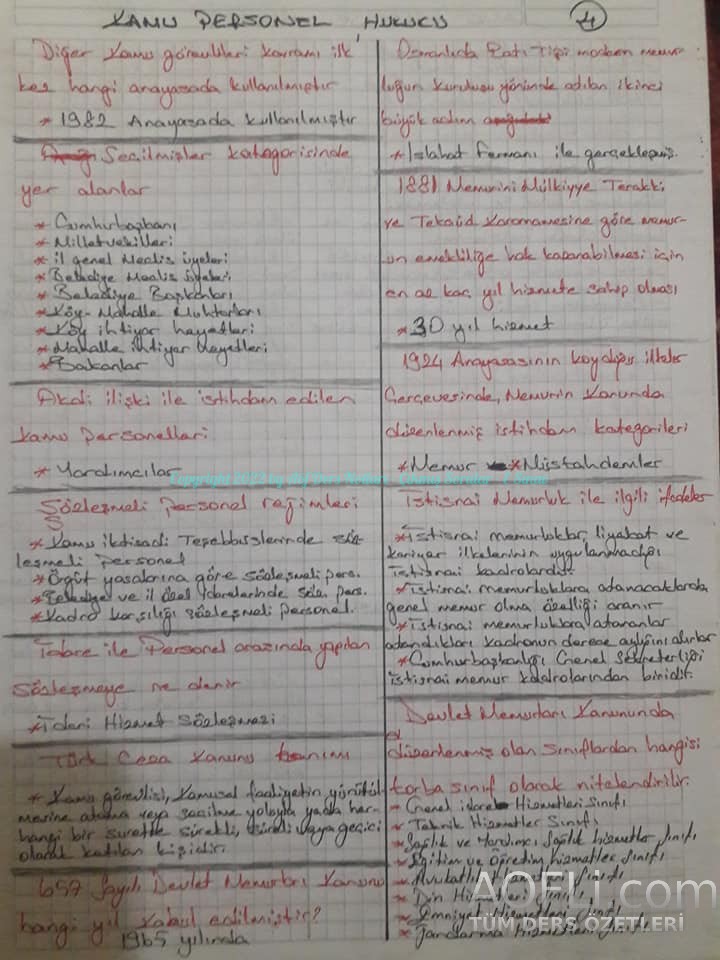 KAMU PERSONEL HUKUCU 4
Diğer kamu görevlileri kavramı ilk
kez hangi anayasada kullanılmıştır
* 1982 Anayasada kullanılmıştır
Seçilmişler kategorisinde
yer alanlar
* Cumhurbaşkanı
* Milletvekilleri
* il genel Meclis üyeleri
* Belediye Meclis üyeleri
* Belediye Başkanları
* Köy-Mahalle Muhtarları
* Köy ihtiyar heyetleri
* Mahalle ihtiyar heyetleri
* Bakanlar
Akdi ilişki ile istihdam edilen
kamu personelleri
* Yardımcılar
Sözleşmeli personel rejimleri
* Kamu iktisadi Teşebbüslerinde söz-
leşmeli personel
* Örgüt yasalarına göre sözleşmeli pers.
* Belediye ve il özel idarelerinde söz. pers.
* Kadro karşılığı sözleşmeli personel.
İdare ile Personel arasında yapılan
sözleşmeye ne denir
* İdari Hizmet Sözleşmesi
Türk Ceza Kanunu tanımı
* Kamu görevlisi, kamusal faaliyetin yürütül-
mesine atama veya seçilme yoluyla yada her-
hangi bir suretle sürekli, süreli veya geçici
olarak katılan kişidir
657 Sayılı Devlet Memurları Kanunu
hangi yıl kabul edilmiştir?
1965 yılında
Osmanlıda Batı Tipi modern memur-
luğun kuruluşu yönünde atılan ikinci
büyük adım
* Islahat Fermanı ile gerçekleşmiş.
1881 Memurini Mülkiyye Terakki
ve Tekaüd Kararnamesine göre memur-
un emekliliğe hak kazanabilmesi için
en az kaç yıl hizmete sahip olması
* 30 yıl hizmet
1924 Anayasasının koyduğu ilkeler
Çerçevesinde, Memurin Kanunda
düzenlenmiş istihdam kategorileri
* Memur * Müstahdemler
istisnai Memurluk ile ilgili ifadeler
* istisnai memurluklar, liyakat ve
kariyer ilkelerinin uygulanmadığı
istisnai kadrolardır
* istisnai memurluklara atanacaklarda
genel memur olma özelliği aranır
* istisnai memurluklara atananlar
atandıkları kadronun derece aylığını alırlar
* Cumhurbaşkanlığı Genel Sekreterliği
istisnai memur kadrolarından biridir.
Devlet Memurları Kanununda
düzenlenmiş olan sınıflardan hangisi
torba sınıf olarak nitelendirilir.
* Genel idare Hizmetleri Sınıfı
* Teknik Hizmetler Sınıfı
* Sağlık ve Yardımcı Sağlık hizmetler Sınıfı
* Eğitim ve Öğretim hizmetler Sınıfı
* Avukatlık Hizmetleri Sınıfı
* Din Hizmetleri Sınıfı
* Emniyet Hizmetleri Sınıfı
* Jandarma Hizmetleri Sınıfı
AOFLi.com
TÜM DERS ÖZETLERİ